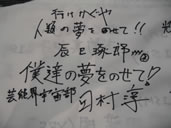 行け かぐや
人類の夢をのせて!!
辰巳琢郎
僕達の夢をのせて!?
芸能界宇宙部
司村淳